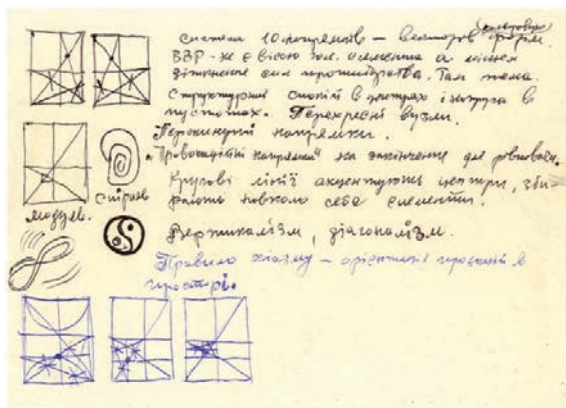 система 10 напрямків – векторів форм.
ВЗР – не є вісою гол. елемента а місцем
зіткнення сил протиборства. Там тема.
Структурний спокій в центрах і напруга в
пустотах. Перехресні вузли.
Перекинуті напрямки.
"Провокаційні напрямки" на закінчення для рівноваги.
Кругові лінії акцентують центри, зби-
рають навколо себе елементи.
модуль. спіраль
Вертикалізм, діагоналізм.
Правило хіазму – орієнтація проекцій в
просторі.